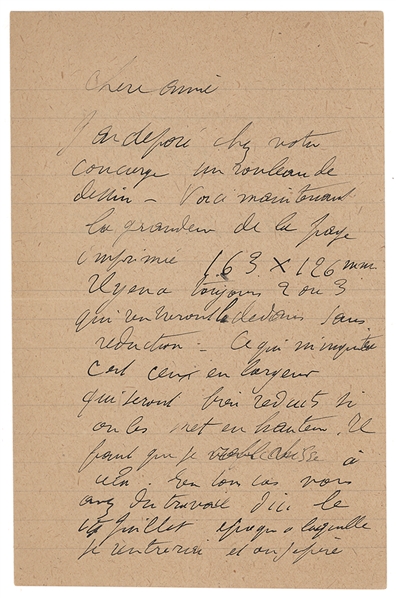 Chere amie
J'ai deposé chez votre
concierge un rouleau de
dessin - Voici maintenant
la grandeur de la page
imprimée 163 x 126 mm.
Il y en a toujours 2 ou 3
qui rentreront dedans sans
reduction - Ce qui m'inquiete
c'est ceux en largeur
qui seront bien reduits si
on les met en hauteur. Il
faut que je à
cela. En tous cas vous
avez du travail d'ici le
Juillet epoque a laquelle
je rentrerai et on j'espère